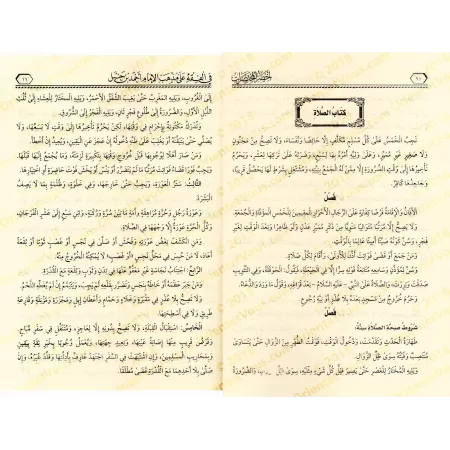 أخصر المختصرات
كتاب الصلاة
تجب الخمس على كل مسلم مكلف إلا حائضا ونفساء، ولا تصح من مجنون
ولا صغير غير مميز، وعلى وليه أمره بها لسبع، وضربه على تركها لعشر، ويحرم
تأخيرها إلى وقت الضرورة إلا ممن له الجمع بنيته، ومشتغل بشرط لها يحصل قريبا،
وجاحدها كافر.
فصل
الأذان والإقامة فرضا كفاية على الرجال الأحرار المقيمين للخمس المؤداة والجمعة.
ولا يصح إلا مرتبا متواليا منويا من ذكر مميز عدل ولو ظاهرا وبعد الوقت لغير
فجر، وسن كونه صيتا أمينا عالما بالوقت.
ومن جمع أو قضى فوائت أذن للأولى، وأقام لكل صلاة.
وسن لمؤذن وسامعه متابعة قوله سرا إلا في الحيعلة، فيقول: الحوقلة، وفي التثويب
صدقت وبررت، والصلاة على النبي - عليه السلام - بعد فراغه، وقول ما ورد والدعاء.
وحرم خروج من مسجد بعده بلا عذر أو نية رجوع
فصل
شروط صحة الصلاة ستة:
طهارة الحدث وتقدمت، ودخول الوقت، فوقت الظهر من الزوال حتى يتساوى
منتصب وفيئه سوى ظل الزوال.
ويليه المختار للعصر حتى يصير ظل كل شيء مثليه، سوى ظل والضرورة
في الفقه على مذهب الإمام أحمد بن حنبل
إلى الغروب، ويليه المغرب حتى يغيب الشفق الأحمر، ويليه المختار للعشاء إلى ثلث
الليل الأول، والضرورة إلى طلوع فجر ثان، ويليه الفجر إلى الشروق.
وتدرك مكتوبة بإحرام في وقتها، لكن يحرم تأخيرها إلى وقت لا يسعها، ولا
يصلي حتى يتيقنه أو يغلب على ظنه دخوله إن عجز عن اليقين، ويعيد إن أخطأ.
ومن صار أهلا لوجوبها قبل خروج وقتها بتكبيرة لزمته، وما يجمع إليها قبلها،
ويجب فورا قضاء فوائت مرتبا ما لم يتضرر أو ينس أو يخش فوت حاضرة أو اختيارها.
الثالث: ستر العورة، ويجب حتى خارجها، وفي خلوة، وظلمة بما لا يصف
البشرة.
وعورة رجل وحرة مراهقة وأمة ما بين سرة وركبة، وابن سبع إلى عشر الفرجان،
وكل الحرة عورة إلا وجهها في الصلاة.
ومن انكشف بعض عورته وفحش أو صلى في نجس أو غصب ثوبا أو بقعة
أعاد، لا من حبس في محل نجس أو غصب لا يمكنه الخروج منه.
الرابع: اجتناب نجاسة غير معفو عنها في بدن وثوب وبقعة مع القدرة.
ومن جبر عظمه أو خاطه بنجس وتضرر بقلعه لم يجب، ويتيمم إن لم يغطه اللحم.
ولا تصح بلا عذر في مقبرة وخلاء وحمام وأعطان إبل ومجزرة ومزبلة وقارعة
طريق ولا في أسطحتها.
الخامس: استقبال القبلة، ولا تصح بدونه إلا لعاجز، ومتنفل في سفر مباح.
وفرض قريب منها إصابة عينها، وبعيد جهتها، ويعمل وجوبا بخبر ثقة بيقين
وبمحاريب المسلمين، وإن اشتبهت في السفر اجتهد عارف بأدلتها وقلد غيره، وإن
صلى بلا أحدهما مع القدرة قضى مطلقا.